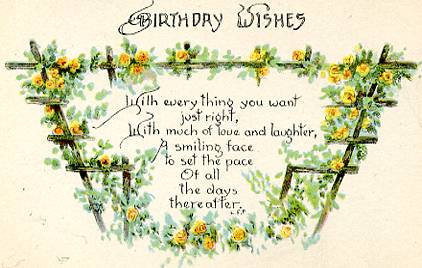 BIRTHDAY WISHES
With every thing you want
just right,
With much of love and laughter,
A smiling face
to set the pace
Of all
the days
thereafter.